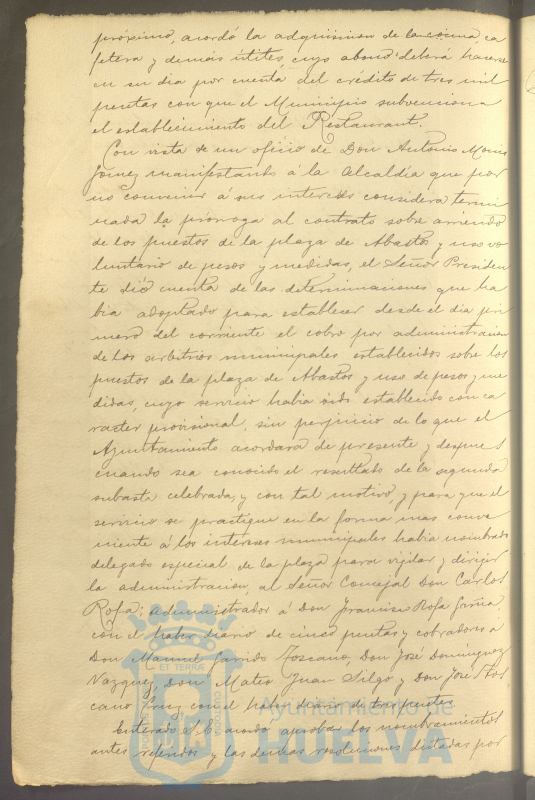 próximo, acordó la adquisicion de la cocina, ca
fetera y demás útiles, cuyo abono deberá hacerse
en su dia por cuenta del crédito de tres mil
pesetas con que el Municipio subvenciona
el establecimiento del Restaurant.
Con vista de un oficio de Don Antonio
Gomez manifestando á la Alcaldía que por
no convenir á sus intereses considera termi
nada la prórroga al contrato sobre arriendo
de los puestos de la plaza de Abastos y uso vo
luntario de pesos y medidas, el Señor Presiden
te dió cuenta de las determinaciones que ha
bia adoptado para establecer desde el dia pri
mero del corriente el cobro por administracion
de los arbitrios municipales establecidos sobre los
puestos de la plaza de Abastos y uso de pesos y me
didas, cuyo servicio habia sido establecido con ca
racter provisional, sin perjuicio de lo que el
Ayuntamiento acordara de presente y despues
cuando sea conocido el resultado de la segunda
subasta celebrada, y con tal motivo, y para que el
servicio se practique en la forma mas conve
niente á los intereses municipales habia nombrado
delegado especial de la plaza para vigilar y dirijir
la administracion, al Señor Concejal Don Carlos
Rofa; administrador á Don Francisco Rofa
con el haber diario de cinco pesetas y cobradores á
Don Manuel Garrido Toscano, Don José Dominguez
Vazquez, Don Mateo Juan Silgo y Don José Tos
cano Cruz, con el haber diario de tres pesetas.
Enterado el I. acordó aprobar los nombramientos
antes referidos y las demás resoluciones dictadas por
ET TERRÆ
Ayuntamiento de
HUELVA